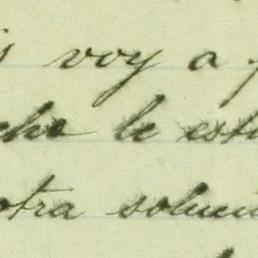 s voy a
che le est
otra soluci